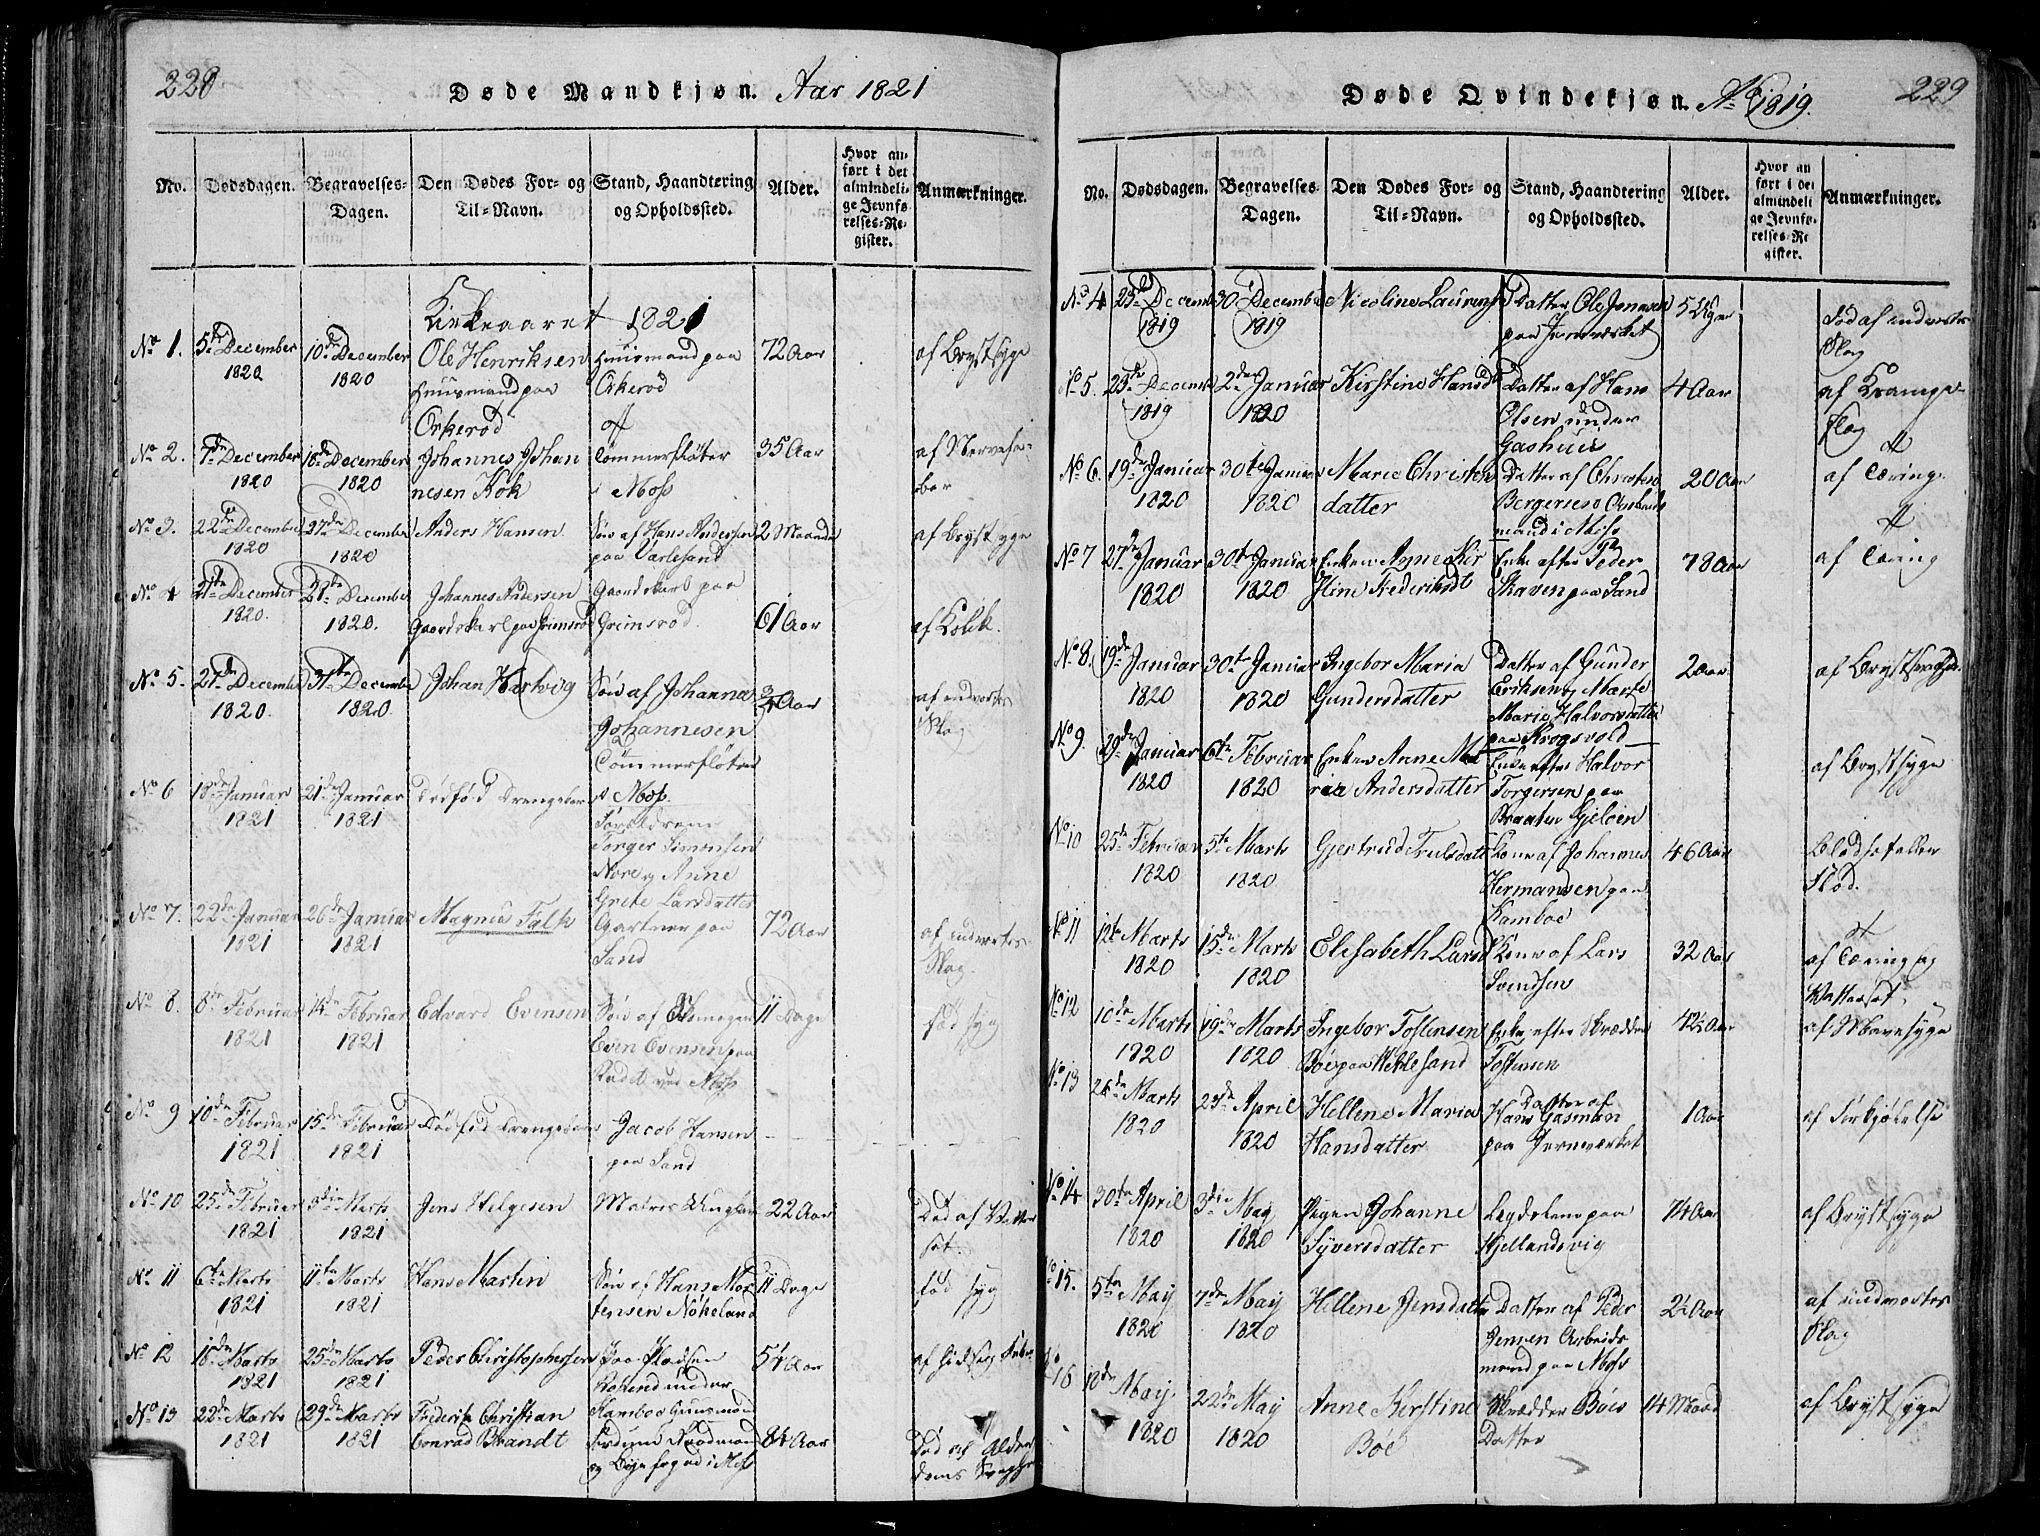 228
Døde Mandkjøn. Aar 1821
No.
Dødsdagen.
Begravelses-
Dagen.
Den Dødes For- og
Til-Navn.
Stand, Haandtering
og Opholdssted.
Alder.
Hvor an-
ført i det
almindeli-
ge Jevnfø-
relses-Re-
gister.
Anmærkninger.
Kirkeaaret 1821
No 1. 5te December 10de December Ole Henriksen Huusmand paa 72 Aar af Brystsyge
1820 1820 Huusmand paa Orkerød
Orkerød
No 2. 7de December 18de December Johannes Johan Tømmerfløter 35 Aar af Nervefe-
1820 1820 nesen Kok i Moss ber
No 3. 22de December 27de December Anders Hansen Søn af Hans Andersen 2 Maander af Brystsyge
1820 1820 paa Varlesand
No 4 21de December 27de December Johannes Andersen Gaardskarl paa
1820. 1820. Gaardskarl paa Grimsrød Grimsrød. 61 Aar af Kolik.
No 5. 27de December 31te December Johan Hartvig Søn af Johannes 3/4 Aar af indvortes
1820. 1820. Johannesen Slag
Tømmerfløter
No 6 18de Januar 21de Januar Dødfød Drengebarn i Moss.
1821 1821 Forældrene
Torger Simonsen
Nore og Anne
Grete Larsdatter
No 7. 22de Januar 26de Januar Magnus Falk Gartner paa 72 Aar af indvortes
1821 1821 Sand Slag.
No 8. 8de Februar 14de Februar Edvard Evensen Søn af 11 Dage fød syg
1821 1821 Even Evensen paa
ved Moss
No 9 10de Februar 15de Februar Dødfød Drengebarn Jacob Hansen
1821 1821 paa Sand
No 10 25de Februar 3die Marts Jens Helgesen 22 Aar Død af Vatter
1821 1821 sot.
No 11 6te Marts 11te Marts Hans Martin Søn af Hans Mor 11 Dage fød syg
1821 1821 tensen Nøkeland
No 12 18de Marts 25de Marts Peder Christophersen 54 Aar
1821 1821 under
No 13 22de Marts 29de Marts Frederik Christian Kamboe Huusmand
1821 1821 Conrad Brandt Raadmand 84 Aar Død af Alder
og Byefoged i Moss doms Svaghed
Døde Qvindekjøn. Ao 1819.
229
No.
Dødsdagen.
Begravelses-
Dagen.
Den Dødes For- og
Til-Navn.
Stand, Haandtering
og Opholdssted.
Alder.
Hvor an
ført i det
almindeli
ge Jevnfø-
relses-Re
gister.
Anmærkninger.
No 4 23de December 30 December Nicoline Laurense Datter Ole Jensen 5 Uger Død af indvortes
1819 1819 paa Jernværket Slag
No 5. 23de December 2den Januar Kirstine Hansdtr Datter af Hans 4 Aar af Krampe-
1819 1820 Olsen under Slag
Gashuus
No 6. 19de Januar 30te Januar Marie Christen Datter af Christen 20 Aar af Tæring.
1820 1820 datter Bergersen Arbeids
mand i Moss
No 7 27de Januar 30te Januar Enken Agnes Kir Enke efter Peder 78 Aar af Tæring
1820 1820 stine Frederiksdtr Skaven paa Sand
No 8. 19de Januar 30te Januar Ingebor Maria Datter af Gunder 2 Aar af Brystsvaghed.
1820 1820 Gundersdatter Eriksen og Marte
Marie Halvorsdatter
paa Krogsvold
No 9. 29de Januar 6te Februar Enken Anne Ma Enke efter Halvor af Brystsyge
1820 1820 ria Andersdatter Torgersen paa
Braaten Gjeløen
No 10 25de Februar 5te Marts Gjertrud Truelsdatter Kone af Johannes 46 Aar Blodsot eller
1820 1820 Hermandsen paa Stød.
Kamboe
No 11 12te Marts 15de Marts Elisabeth Larsd Kone af Lars 32 Aar af Tæring og
1820 1820 Svendsen Vattersot.
No 12 10de Marts 19de Marts Ingebor Tostensen Enke efter Skrædder 42 Aar af Mavesyge
1820 1820 Bøe paa Tostensen
No 13 26de Marts 23de April Hellene Maria Datter af
Hans Gasman 1 Aar af Forkjølelse
1820 1820 Hansdatter paa Jernværket
No 14 30te April 3die May Pigen Johanne Legdslem paa 74 Aar af Brystsyge
1820 1820 Syversdatter Kjellandsvig
No 15. 5te May 7de May Hellene Jensdatter Datter af Peder 2½ Aar af indvortes
1820 1820 Jensen Arbeids Slag
mand paa Moss
No 16 18de May 22de May Anne Kirstine Skrædder Bøes 14 Maaned af Brystsyge
1820 1820 Bøe Datter